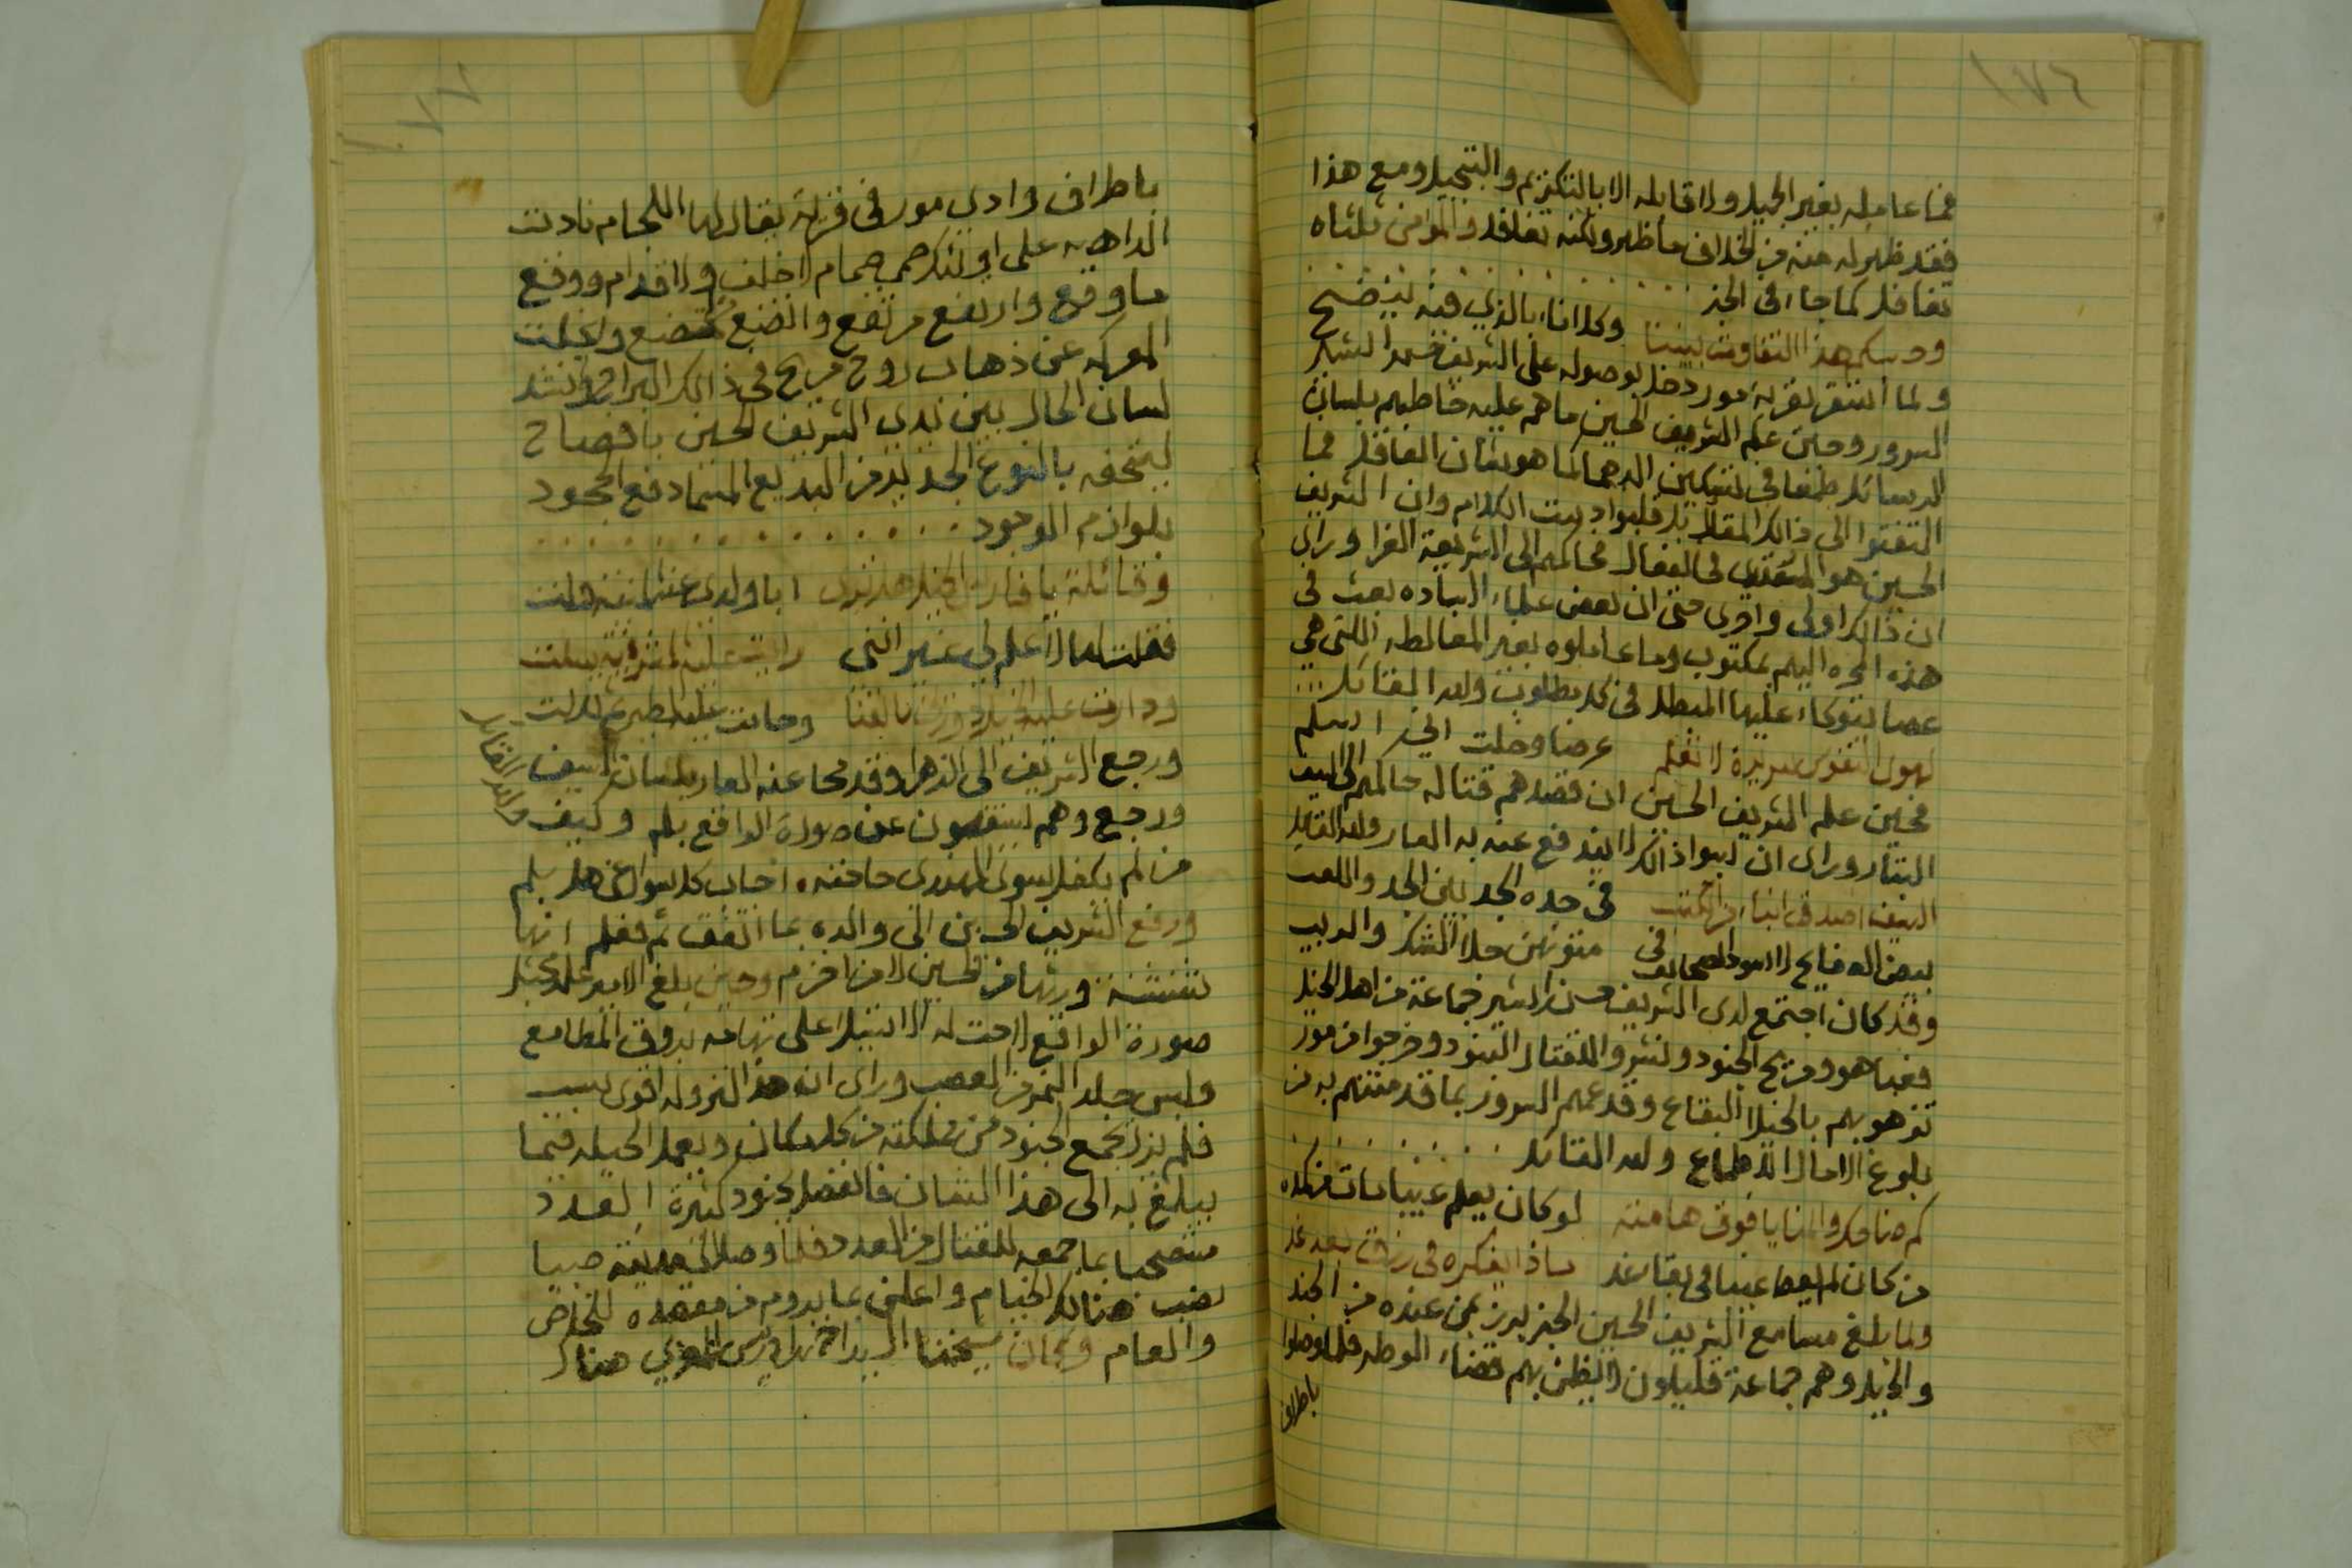 ١٧٦
فما عامله بغير الجميل ولا قابله الا بالتكريم والتبجيل ومع هذا
فقد ظهر له منه من الخلاف ما ظهر ولكنه تغافل والمؤمن ثلثاه
تغافل كما جاء في الخبر
هذا التفاوت بيننا وكل اناء بالذي فيه ينضح
ولما استقر بقرية مور دخل بوصوله على الشريف حسن
السرور وحين علم الشريف الحسين ما هم عليه خاطبهم بلسان
الرسائل طمعا في تسكين الدهما كما هو شان العاقل فما
التفتوا الى ذالك المقال بل قلبوا دست الكلام وان الشريف
الحسين هو المتعدي في الفعال محاكمهم الى الشريعة الغرا وراى
ان ذالك اولى واحرى حتى ان بعض علماء الساده بعث في
هذه المره اليهم بمكتوب وما عاملوه بغير المغالطه اللتي هي
عصا يتوكاء عليها المبطل في كل مطلوب ولله القائل
لهوى النفوس سريرة لا تعلم عرضا وخلت اني اسلم
فحين علم الشريف الحسين ان قصدهم قتاله حاكمهم الى السيف
البتار وراى ان سوا ذالك لا يندفع عنه به العار ولله القائل
السيف اصدق انباء من الكتب في حده الحد بين الجد واللعب
بيض الصفايح لا سود الصحائف في متونهن جلا الشك والريب
وقد كان اجتمع لدى الشريف حسن بن بشير جماعة من اهل الخيل
فعبا هو ومن معه الجنود ونشروا للقتال البنود وخرجوا من مور
تزهو بهم بالخيلا البقاع وقد عمهم السرور بما قد منتهم به من
بلوغ الامال الاطماع ولله القائل
كم ضاحك والمنايا فوق هامته لو كان يعلم غيبا مات من كمد
من كان لم يعط علما في بقاء غد ماذا تفكره في رزق بعد غد
ولما بلغ مسامع الشريف الحسين الخبر برز بمن عنده من الجند
والخيل وهم جماعة قليلون لا يظن بهم قضاء الوطر فلما وصلوا
باطراف
١٧٧
باطراف وادي مور في قرية يقال لها اللجام نادت
الداهيه على اولئك صمي صمام لا خلف ولا قدام ووقع
ما وقع وارتفع من ارتفع واتضع من اتضع وانجلت
المعركه عن ذهاب روح من راح في ذالك البراح وانشد
لسان الحال بين يدي الشريف الحسين بافصاح
ليتحفه بالنوع الجديد من البديع المسما دفع الجحود
بلوازم الموجود
وقائلة يا فارس الخيل هل ترى ابا ولدي عنه المنيه ولت
فقلت لها لا علم لي غير انني رايت عليه المشرفية سلت
ودارت عليه الخيل دورين بالقنا وحامت عليه الطير ثم تدلت
ورجع الشريف الى الزهرا وقد محا عنه العار بلسان السيف
ورجع وهم يستفهمون عن صورة الواقع بلم وكيف
من لم يكن لسوى المهدي حاجته اجاب كل سوال عن هل بلم
ورفع الشريف الحسين الى والده بما اتفق ثم فعلم انها
شنشنة ورثها من حسين لا من اخزم وحين بلغ الامير علي بن مجثل
صورة الواقع لاحت له الاستيلا على تهامه بروق المطامع
ولبس جلد النمر من الغضب وراى ان هذا النزوله اقوى سبب
فلم يزل يجمع الجنود من مملكته من كل مكان ويعمل الحيله فيما
يبلغ به الى هذا الشان فانفصل بجنود كثيرة العدد
مستصحبا بما جمعه للقتال من العدد فلما وصل الى مدينة صبيا
نصب هنالك الخيام واعلن بما يروم من مقصده للخاص
والعام وكان شيخنا السيد احمد بن ادريس المغربي هناك